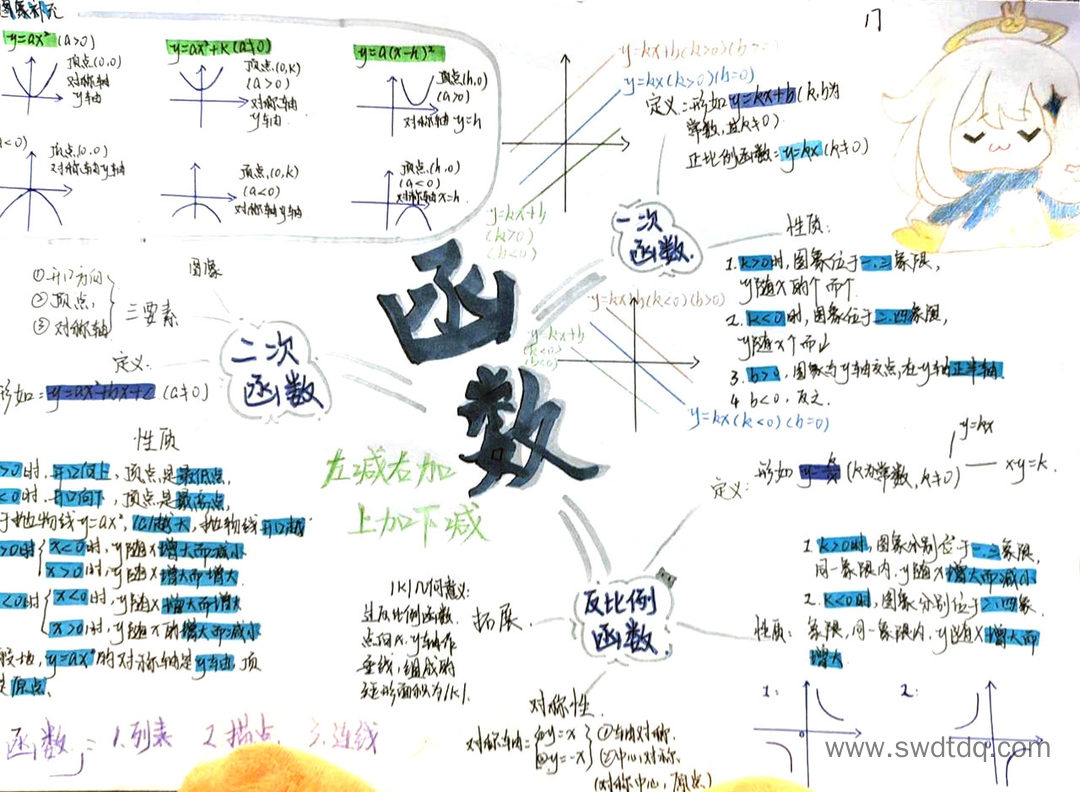 图象
y=ax² (a>0)
顶点(0,0)
对称轴
y轴
y=ax²+k(a≠0)
顶点(0,k)
(a>0)
对称轴
y轴
y=a(x-h)²
顶点(h,0)
(a>0)
对称轴 y=h
<0)
顶点(0,0)
对称轴y轴
顶点(0,k)
(a<0)
对称轴y轴
顶点(h,0)
(a<0)
对称轴x=h
17
y=kx+b(k>0)(b>0)
y=kx(k>0)(b=0)
y=kx+b
(k>0)
(b<0)
定义:形如y=kx+b(k,b为
常数,且k≠0)
正比例函数=y=kx(k≠0)
一次
函数
性质:
1.k>0时,图象位于一.三象限,
y随x的↑而↑
2.k<0时,图象位于二.四象限,
y随x↑而↓
3.b>0,图象与y轴交点,在y轴正半轴
4 b<0,反之.
y=kx+b(k<0)(b>0)
y=kx+b
(k<0)
(b<0)
y=kx(k<0)(b=0)
函数
①开口方向
②顶点,
③对称轴
三要素
图像
二次
函数
定义:
形如=y=ax²+bx+c (a≠0)
性质
>0时,开口向上,顶点是最低点,
<0时,开口向下,顶点是最高点,
于抛物线y=ax²,|a|越大,抛物线开口越
>0时
x<0时,y随x增大而减小
x>0时,y随x增大而增大
<0时
x<0时,y随x增大而增大
x>0时,y随x的增大而减小
般地,y=ax²的对称轴是y轴,顶
是原点.
函数= 1.列表 2.描点 3.连线
左减右加
上加下减
反比例
函数.
定义:
形如y=k/x(k为常数,k≠0)
y=kx
x·y=k.
性质:
1.k>0时,图象分别位于一.三象限,
同一象限内,y随x增大而减小
2.k<0时,图象分别位于二.四象
象限,同一象限内,y随x增大而
增大
1:
2:
拓展.
|K|几何意义:
过反比例函数
点向x.y轴作
垂线,组成的
矩形面积为|K|.
对称性.
对称轴=①y=x
②y=-x
①轴对称.
②中心对称.
(对称中心,原点)
www.swdtdq.com